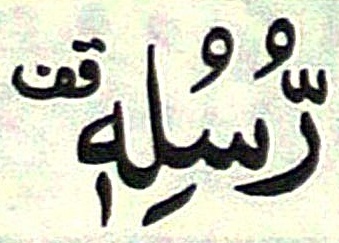 رُّسُلِهٖ قف